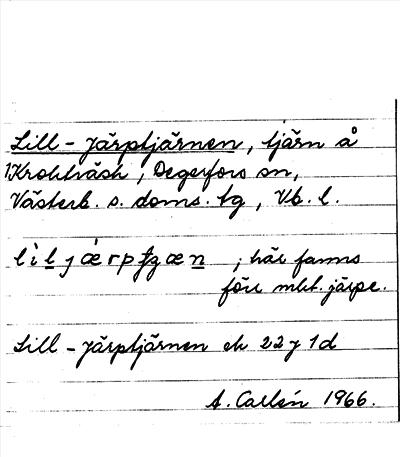 Lill-Järptjärnen, tjärn å
Krokträsk, Degerfors sn,
Västerb. s. doms. tg, Vb. l.
; här fanns
förr mkt. järpe.
Lill-Järptjärnen ek 22 j 1d
A. Carlén 1966.